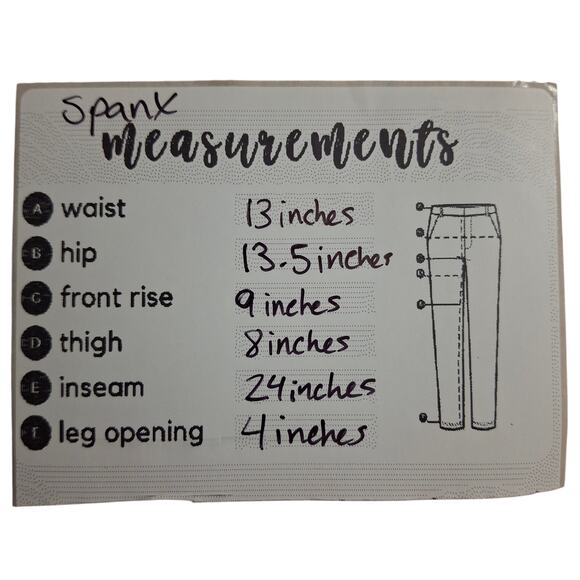 Spanx
measurements
A waist 13 inches
B hip 13.5 inches
C front rise 9 inches
D thigh 8 inches
E inseam 24 inches
F leg opening 4 inches